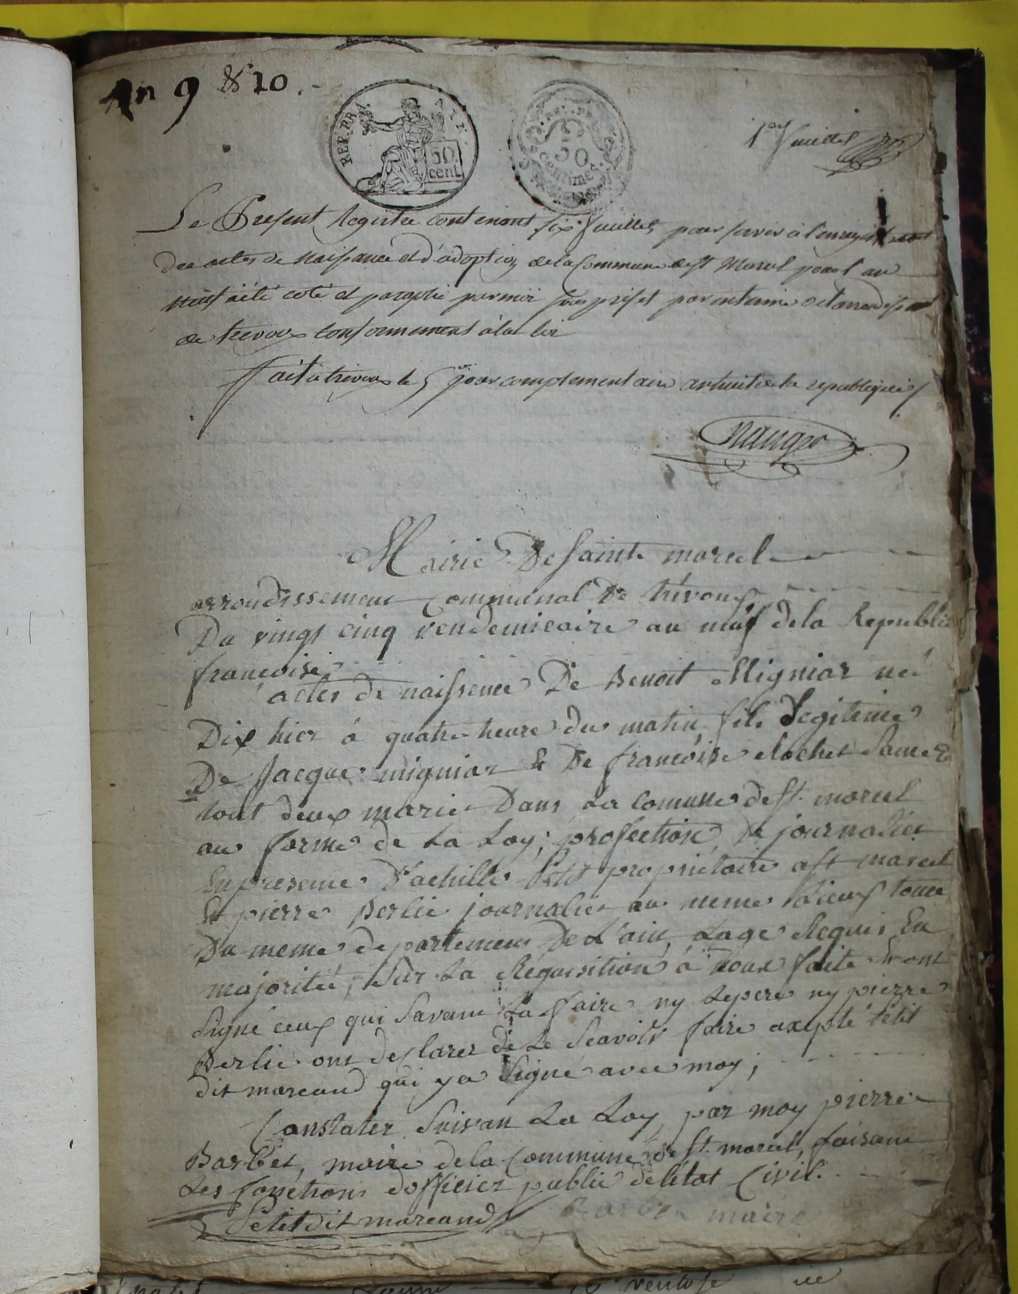 An 9 & 10.
REP. FRA
50 cent.
50 centimes
1er feuillet
Le Present Registre contenant six feuillets pour servir à l'enregistrement
des actes de Naissance et d'adoption de la Commune de St Marcel pour l'an
neuf a été coté et paraphé par moi sous préfet par interim de l'arrondissement
de trevoux conformement à la loi
fait a trevoux le 5 jour complementaire an huit de la republique
Mairie De Sainte marcel
arroudissement Communal De trévoux
Du vingt cinq vendemieaire an neuf de la Republic
francoise
actes de naissence De Benoit Migniar né
Dix hier à quatre heure du matin, fils Legitime
De Jacque migniar & De francoise clochet
tout deux marie Dans La comune de St. marcel
au forme de La Loy; profection De journalier
En presence D'achille Petit propriétaire a St marcel
Et pierre Berlie journalier au meme Lieux tous
Du meme departement De L'ain, Lage Requis En
majorité, Sur La Requisition à nous faite & ont
Signé ceux qui Savant La faire ny Lepere ny pierre
Berlie ont desclarer de Le Scavoir faire axepté petit
dit mareand qui ya Signé avec moy;
Constater Suivan La Loy par moy pierre
Barbet, maire de la Commune de St. marcel, faisant
Les fonctions dofficier publie de létat Civil.
Petit dit mareand Barbet maire
ventose